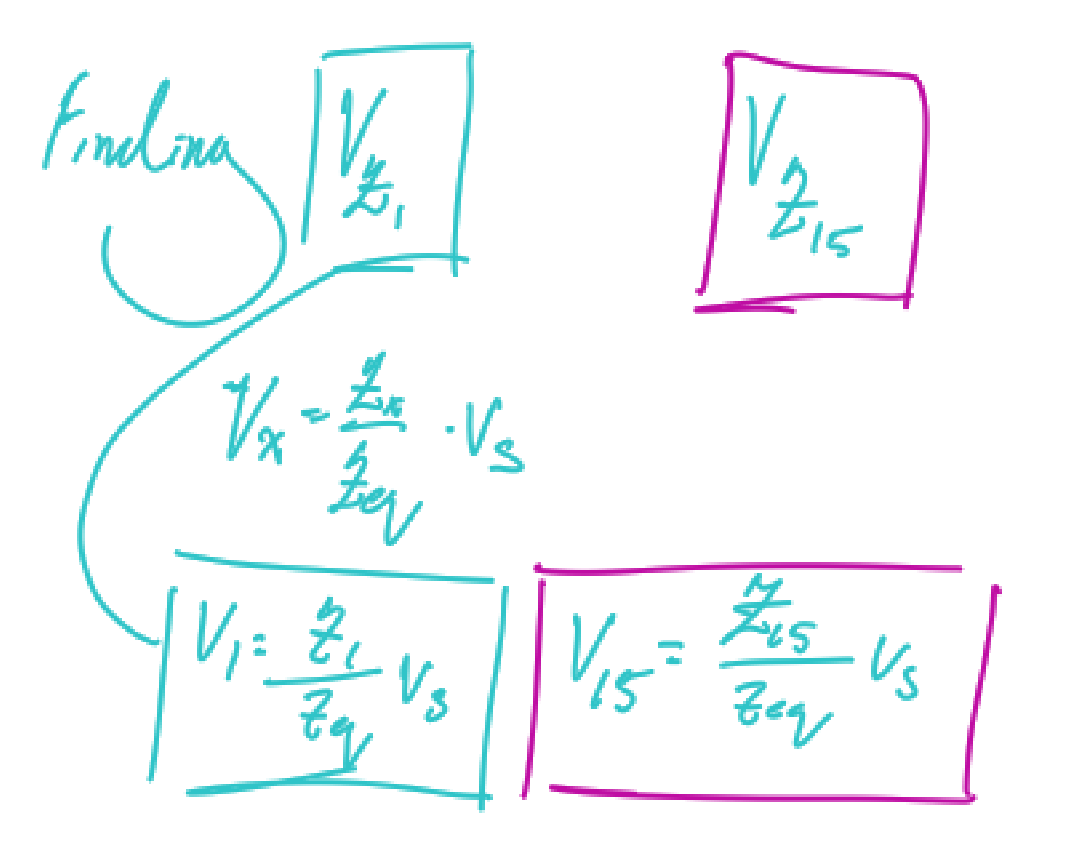 Finding V_Z₁ V_Z₁₅
Vₓ = Zₓ/Zeq · Vs
V₁ = Z₁/Zeq Vs V₁₅ = Z₁₅/Zeq Vs